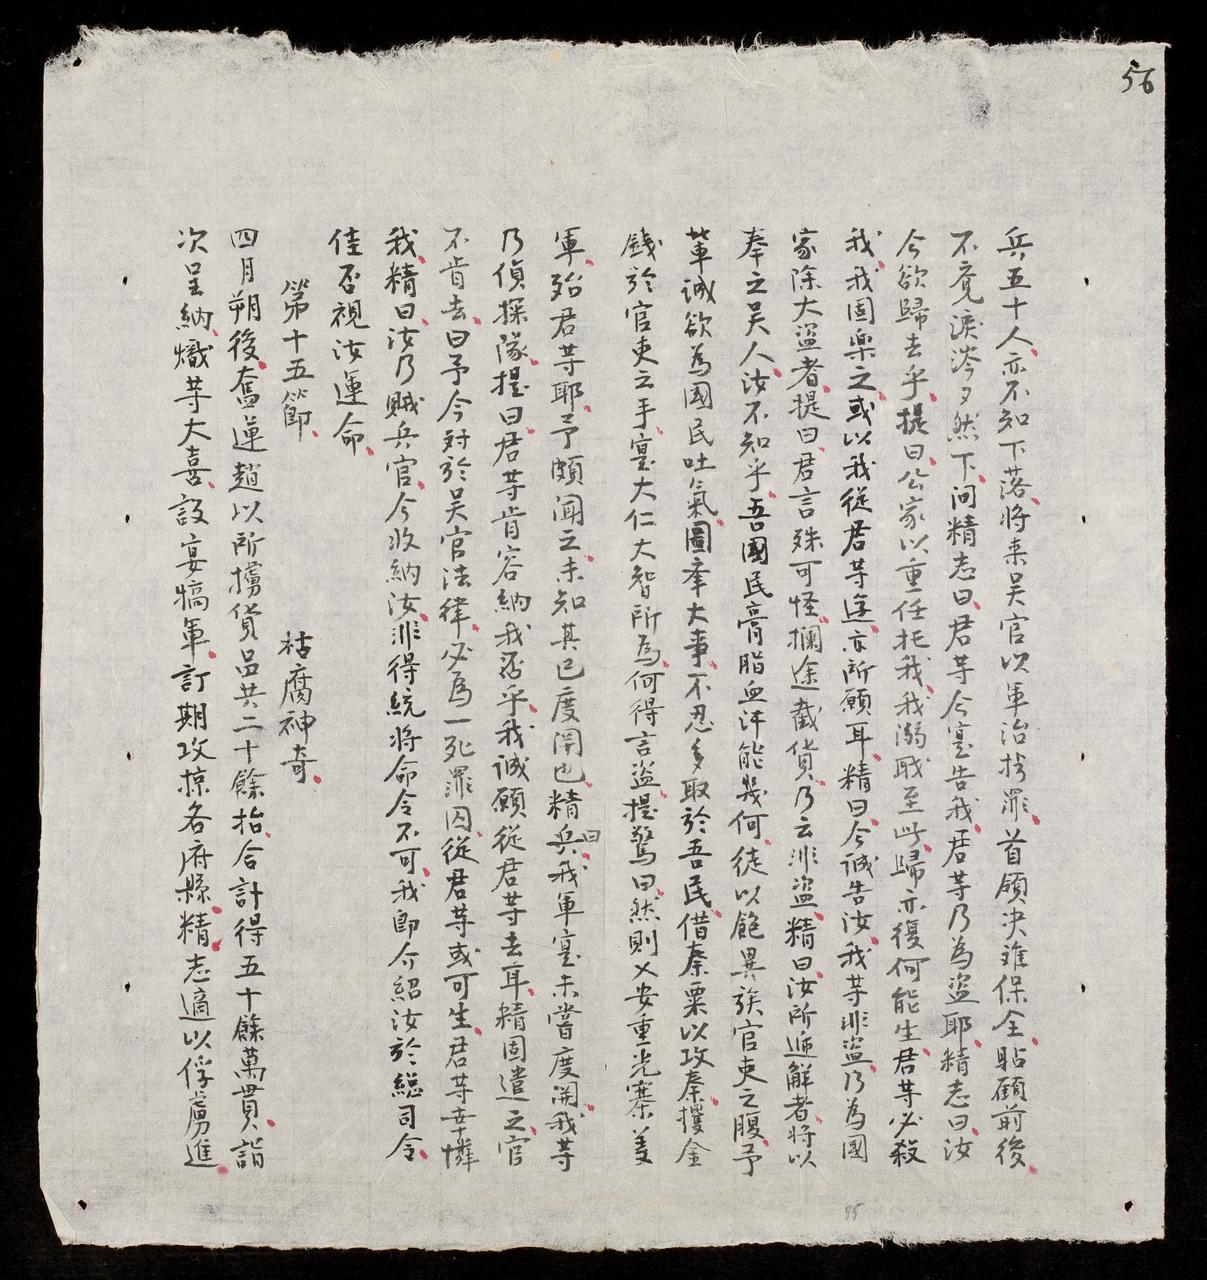 56
兵五十人亦不知下落、将来吴官以軍治抄罪、首領决难保全、瞻顧前後、
不竟淚涔夕然下、问精志曰、君等今寔告我、君等乃為盜耶、精志曰、汝
今欲歸去乎、提曰、公家以重任托我、我溺戝至此、歸亦復何能生、君等必殺
我、我固楽之、或以我從君等遊、亦所願耳、精曰、今誠告汝、我等非盜、乃為國
家除大盜者、提曰、君言殊可怪、攔途截貨、乃云非盜、精曰、汝所逓解者、將以
奉之吴人、汝不知乎、吾國民膏脂血汗能幾何、徒以飽異族官吏之腹、予
軰誠欲為國民吐氣、圖牽大事、不忍多取於吾民、借秦粟以攻秦、攫金
錢於官吏之手、寔大仁大智所為、何得言盜、提驚曰、然則乂安重光寨義
軍、殆君等耶、予頗聞之、未知其已度関也、精曰、我軍寔未嘗度関、我等
乃偵探隊、提曰、君等肯容納我否乎、我誠願從君等去耳、精固遣之、官
不肯去、曰、予今对於吴官法律、必為一死罪囚、從君等或可生、君等幸憐
我、精曰、汝乃贼兵官、今收納汝、非得統将命令不可、我即介紹汝於総司令、
佳否視汝運命、
第十五節、
枯腐神奇、
四月朔後、奮、蓮、趙以所擄貨品共二十餘抬、合計得五十餘萬貫、詣
次呈納、熾等大喜、設宴犒軍、訂期攻掠各府縣、精志適以俘虜進、
55